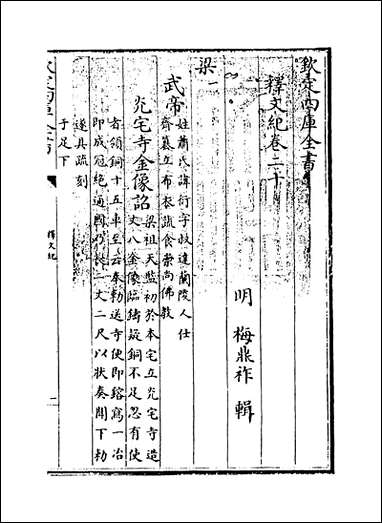 欽定四庫全書
釋文紀卷二十
明 梅鼎祚 輯
梁一
武帝
姓蕭氏諱衍字叔達蘭陵人仕
齊纂立布衣蔬食崇尚佛教
光宅寺金像詔
梁祖天監初於本宅立光宅寺造
丈八金像臨鑄疑銅不足忽有使
者領銅十五車至云奉勅送寺使即鎔寫一冶
即成冠絶通國乃長二丈二尺以狀奏聞下勅
遂具疏刻
于足下
釋文紀